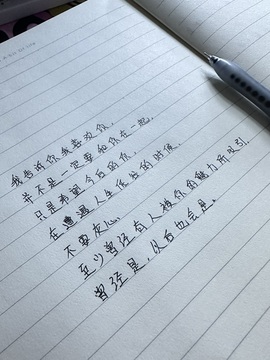 我告诉你我喜欢你,
并不是一定要和你在一起,
只是希望今后的你,
在遭遇人生低谷的时候,
不要灰心,
至少曾经有人被你的魅力所吸引,
曾经是,以后也会是。